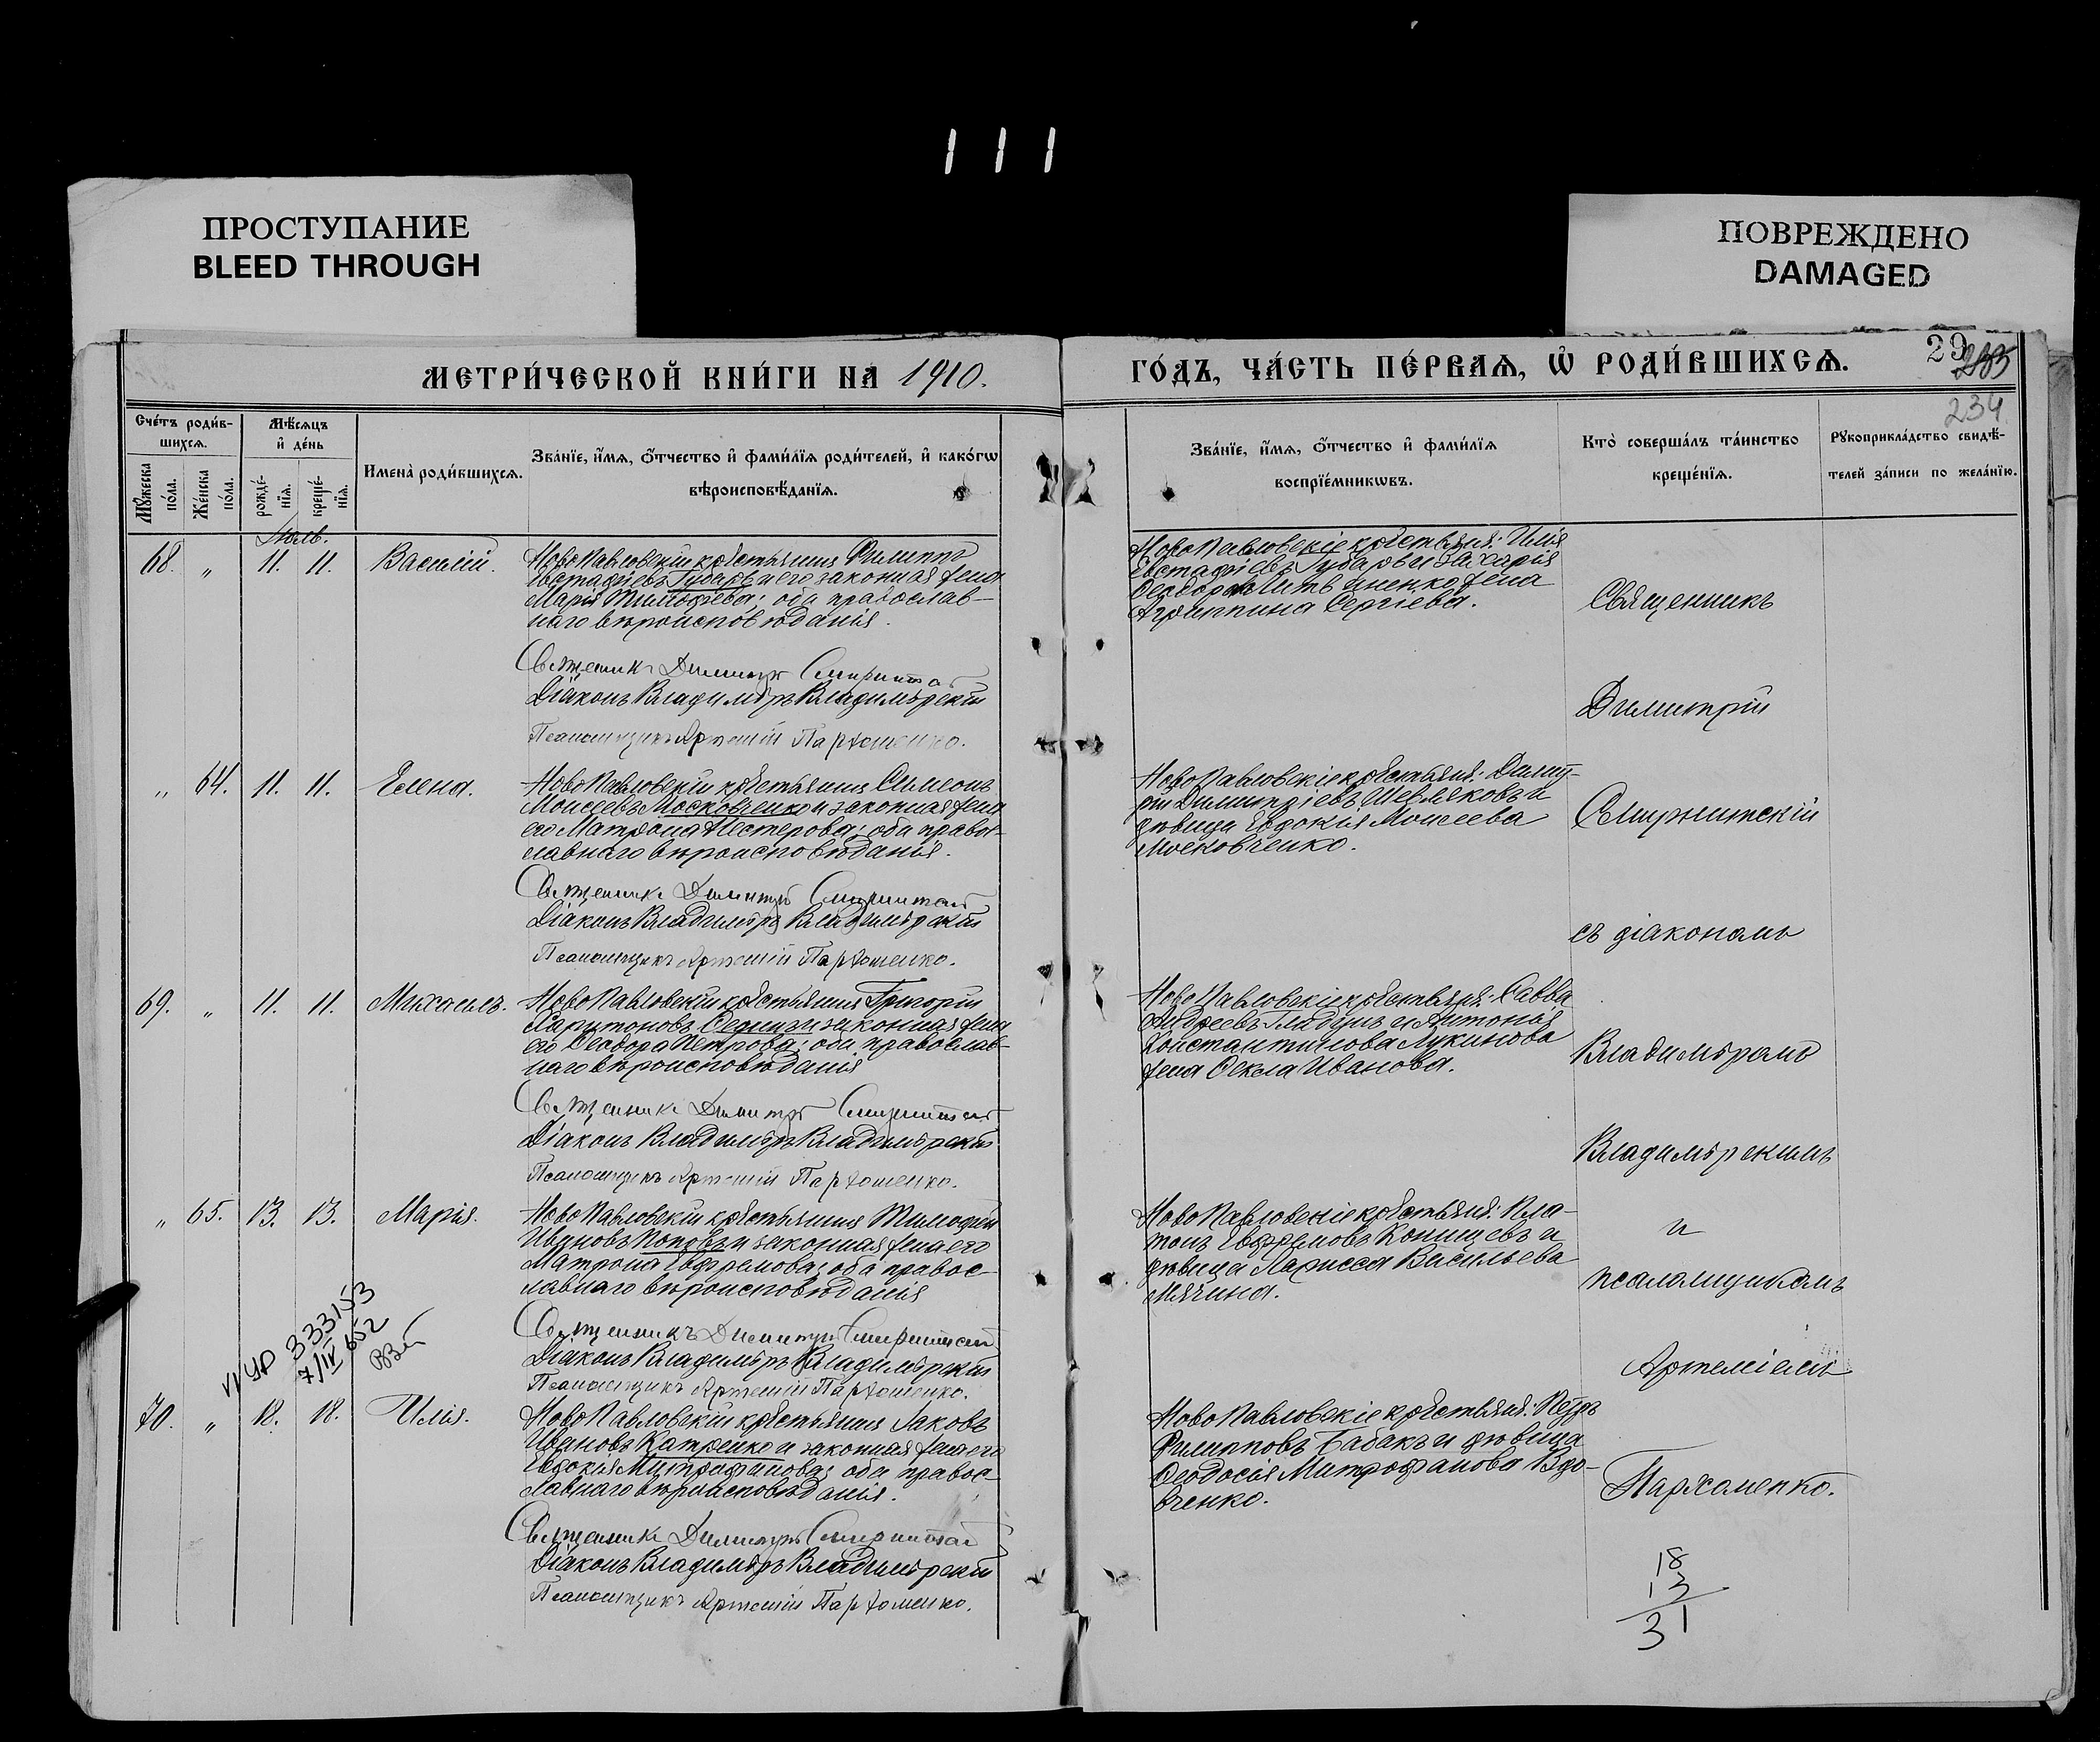 111
ПРОСТУПАНИЕ
BLEED THROUGH
ПОВРЕЖДЕНО
DAMAGED
МЕТРИ́ЧЕСКОЙ КНИ́ГИ НА 1910.
ГО́ДЪ, ЧА́СТЬ ПЕ́РВАѦ, Ѡ҆ РОДИ́ВШИХСѦ.
29
285
234
Сче́тъ роди́в-
шихсѧ.
Мꙋ́жеска по́ла.
Же́нска по́ла.
Мѣ́сѧцъ
и҆ де́нь
рожде́-нїѧ.
креще́-нїѧ.
Имена̀ роди́вшихсѧ.
Зва́нїе, и҆́мѧ, ѻ҆́тчество и҆ фами́лїѧ роди́телей, и҆ како́гѡ
вѣроисповѣ́данїѧ.
Зва́нїе, и҆́мѧ, ѻ҆́тчество и҆ фами́лїѧ
воспрїе́мникѡвъ.
Кто̀ соверша́лъ та́инство
креще́нїѧ.
Рꙋкоприкла́дство свидѣ́-
телей за́писи по жела́нїю.
Іюль.
68. „ 11. 11. Василій.
НовоПавловскій крестьянинъ Филиппъ
Евстафіевъ Губарь и его законная жена
Марія Тимофѣева; оба православ-
наго вѣроисповѣданія.
Священникъ Димитрій Смирнитскій
Діаконъ Владиміръ Владимірскій
Псаломщикъ Артемій Пархоменко.
НовоПавловскіе крестьяне: Илія
Евстафіевъ Губарь и Захарія
Ѳеодорова Литвиненко жена
Агриппина Сергіева.
„ 64. 11. 11. Елена.
НовоПавловскій крестьянинъ Симеонъ
Моисеевъ Московченко и законная жена
его Матрона Нестерова; оба правос-
лавнаго вѣроисповѣданія.
Священникъ Димитрій Смирнитскій
Діаконъ Владиміръ Владимірскій
Псаломщикъ Артемій Пархоменко.
НовоПавловскіе крестьяне: Димит-
рій Димитріевъ Шевляковъ и
дѣвица Евдокія Моисеева
Московченко.
69. „ 11. 11. Михаилъ.
НовоПавловскій крестьянинъ Григорій
Харитоновъ Сединъ и законная жена
его Ѳеодора Петрова; оба православ-
наго вѣроисповѣданія
Священникъ Димитрій Смирнитскій
Діаконъ Владиміръ Владимірскій
Псаломщикъ Артемій Пархоменко.
НовоПавловскіе крестьяне: Савва
Андреевъ Гладунъ и Антонія
Константинова Лукинова
жена Ѳекла Иванова.
„ 65. 13. 13. Марія.
НовоПавловскій крестьянинъ Тимофей
Ивановъ Поповъ и законная жена его
Матрона Ефремова; оба правос-
лавнаго вѣроисповѣданія
Священникъ Димитрій Смирнитскій
Діаконъ Владиміръ Владимірскій
Псаломщикъ Артемій Пархоменко.
НовоПавловскіе крестьяне: Пла-
тонъ Евфремовъ Конищевъ и
дѣвица Ларисса Васильева
Мячина.
333153
7/IV 652
70. „ 18. 18. Илія.
НовоПавловскій крестьянинъ Іаковъ
Ивановъ Катренко и законная жена его
Евдокія Митрофанова; оба правос-
лавнаго вѣроисповѣданія.
Священникъ Димитрій Смирнитскій
Діаконъ Владиміръ Владимірскій
Псаломщикъ Артемій Пархоменко.
НовоПавловскіе крестьяне: Петръ
Филипповъ Бабакъ и дѣвица
Ѳеодосія Митрофанова Вдо-
вченко.
Священникъ
Димитрій
Смирнитскій
съ діакономъ
Владиміромъ
Владимірскимъ
и
псаломщикомъ
Артеміемъ
Пархоменко.
18
13
31